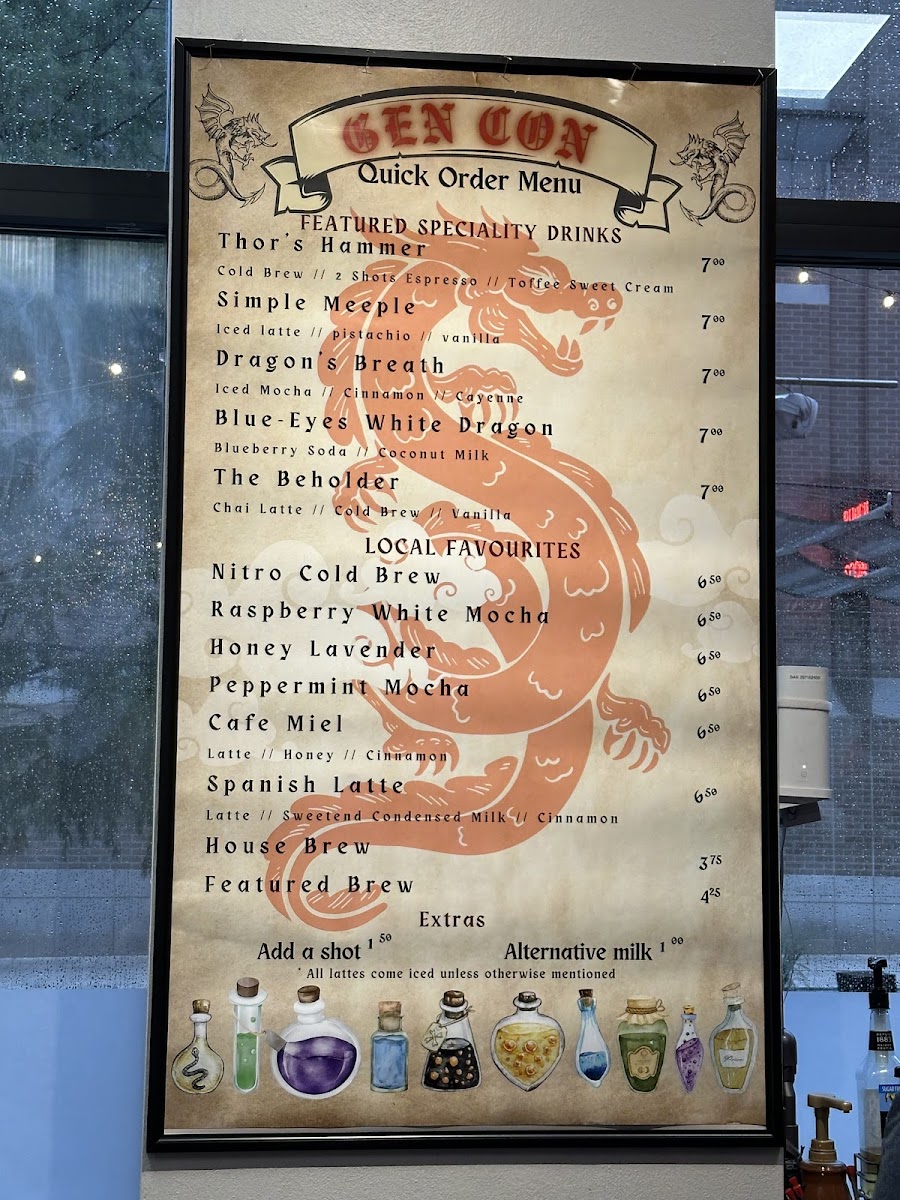 GEN CON
Quick Order Menu
FEATURED SPECIALITY DRINKS
Thor's Hammer 7⁰⁰
Cold Brew // 2 Shots Espresso // Toffee Sweet Cream
Simple Meeple 7⁰⁰
Iced latte // pistachio // vanilla
Dragon's Breath 7⁰⁰
Iced Mocha // Cinnamon // Cayenne
Blue-Eyes White Dragon 7⁰⁰
Blueberry Soda // Coconut Milk
The Beholder 7⁰⁰
Chai Latte // Cold Brew // Vanilla
LOCAL FAVOURITES
Nitro Cold Brew 6⁵⁰
Raspberry White Mocha 6⁵⁰
Honey Lavender 6⁵⁰
Peppermint Mocha 6⁵⁰
Cafe Miel 6⁵⁰
Latte // Honey // Cinnamon
Spanish Latte 6⁵⁰
Latte // Sweetend Condensed Milk // Cinnamon
House Brew 3⁷⁵
Featured Brew 4²⁵
Extras
Add a shot 1⁵⁰ Alternative milk 1⁰⁰
* All lattes come iced unless otherwise mentioned
1883
SUGAR FREE